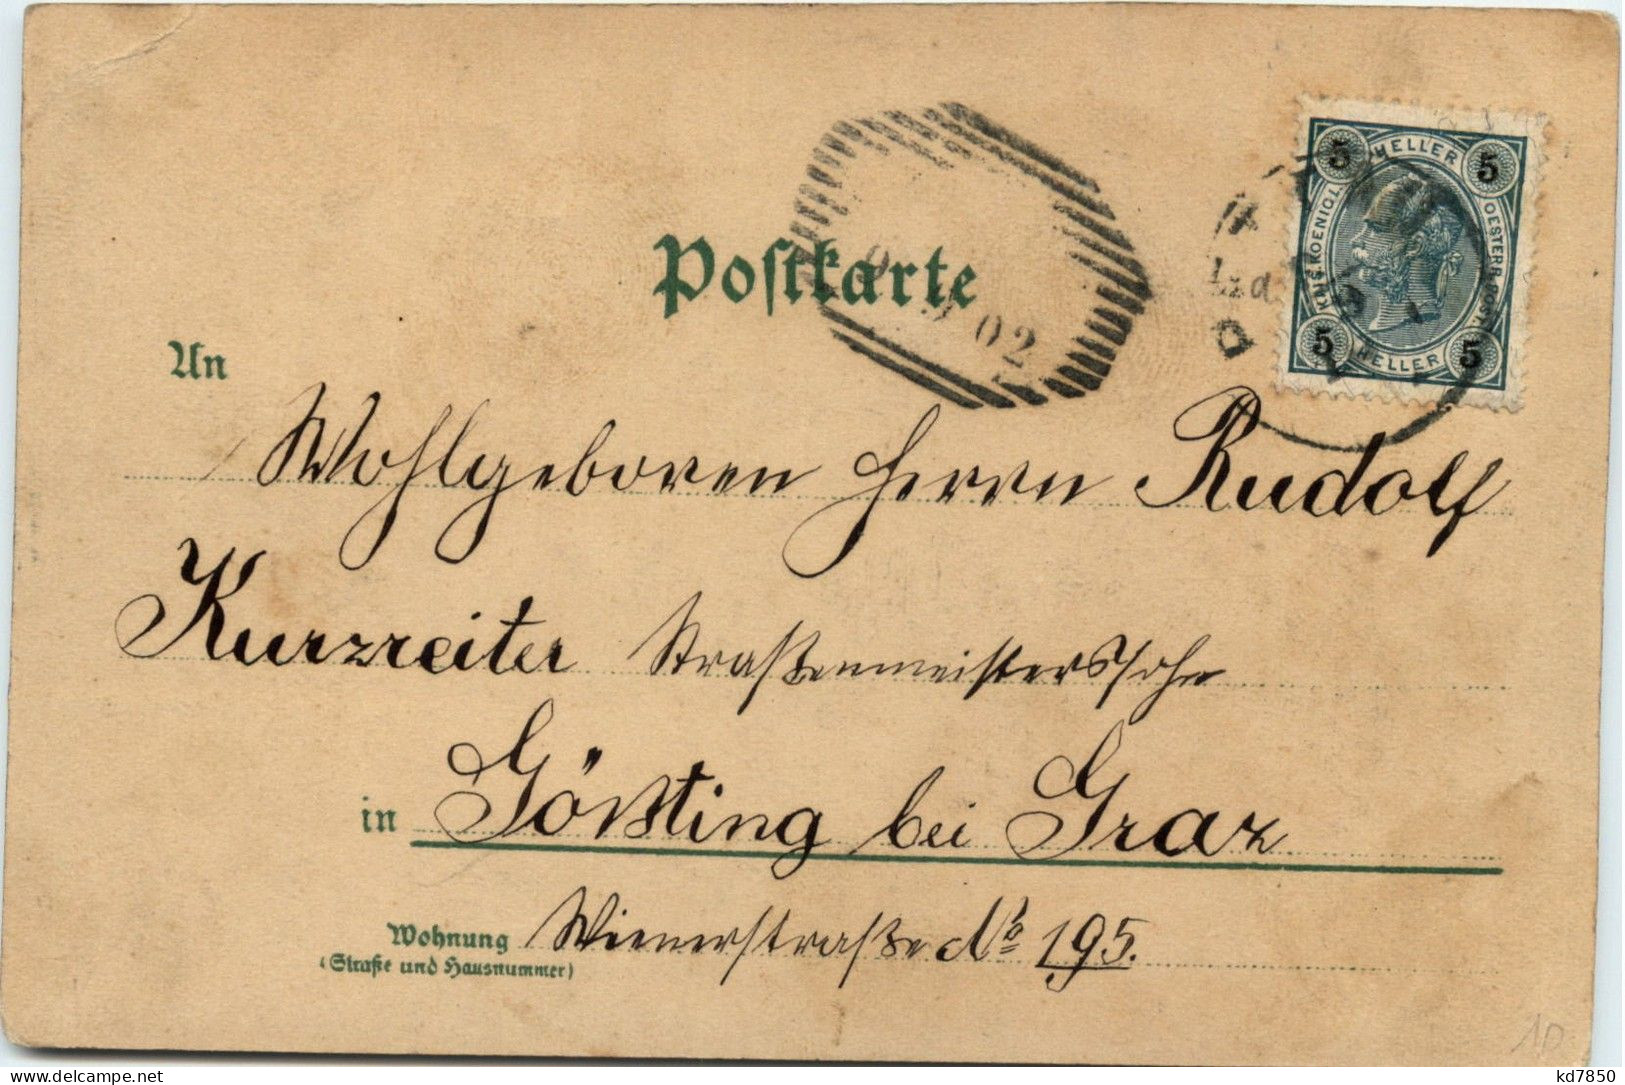 Postkarte
5 HELLER 5
KAIS. KOENIGL. OESTERR. POST.
5 HELLER 5
02
An
Wohlgeboren Herrn Rudolf
Kurzreiter Straßenmeisterssohn
in Gößting bei Graz
Wohnung Wienerstraße No 195.
(Straße und Hausnummer)
10
delcampe.net
kd7850